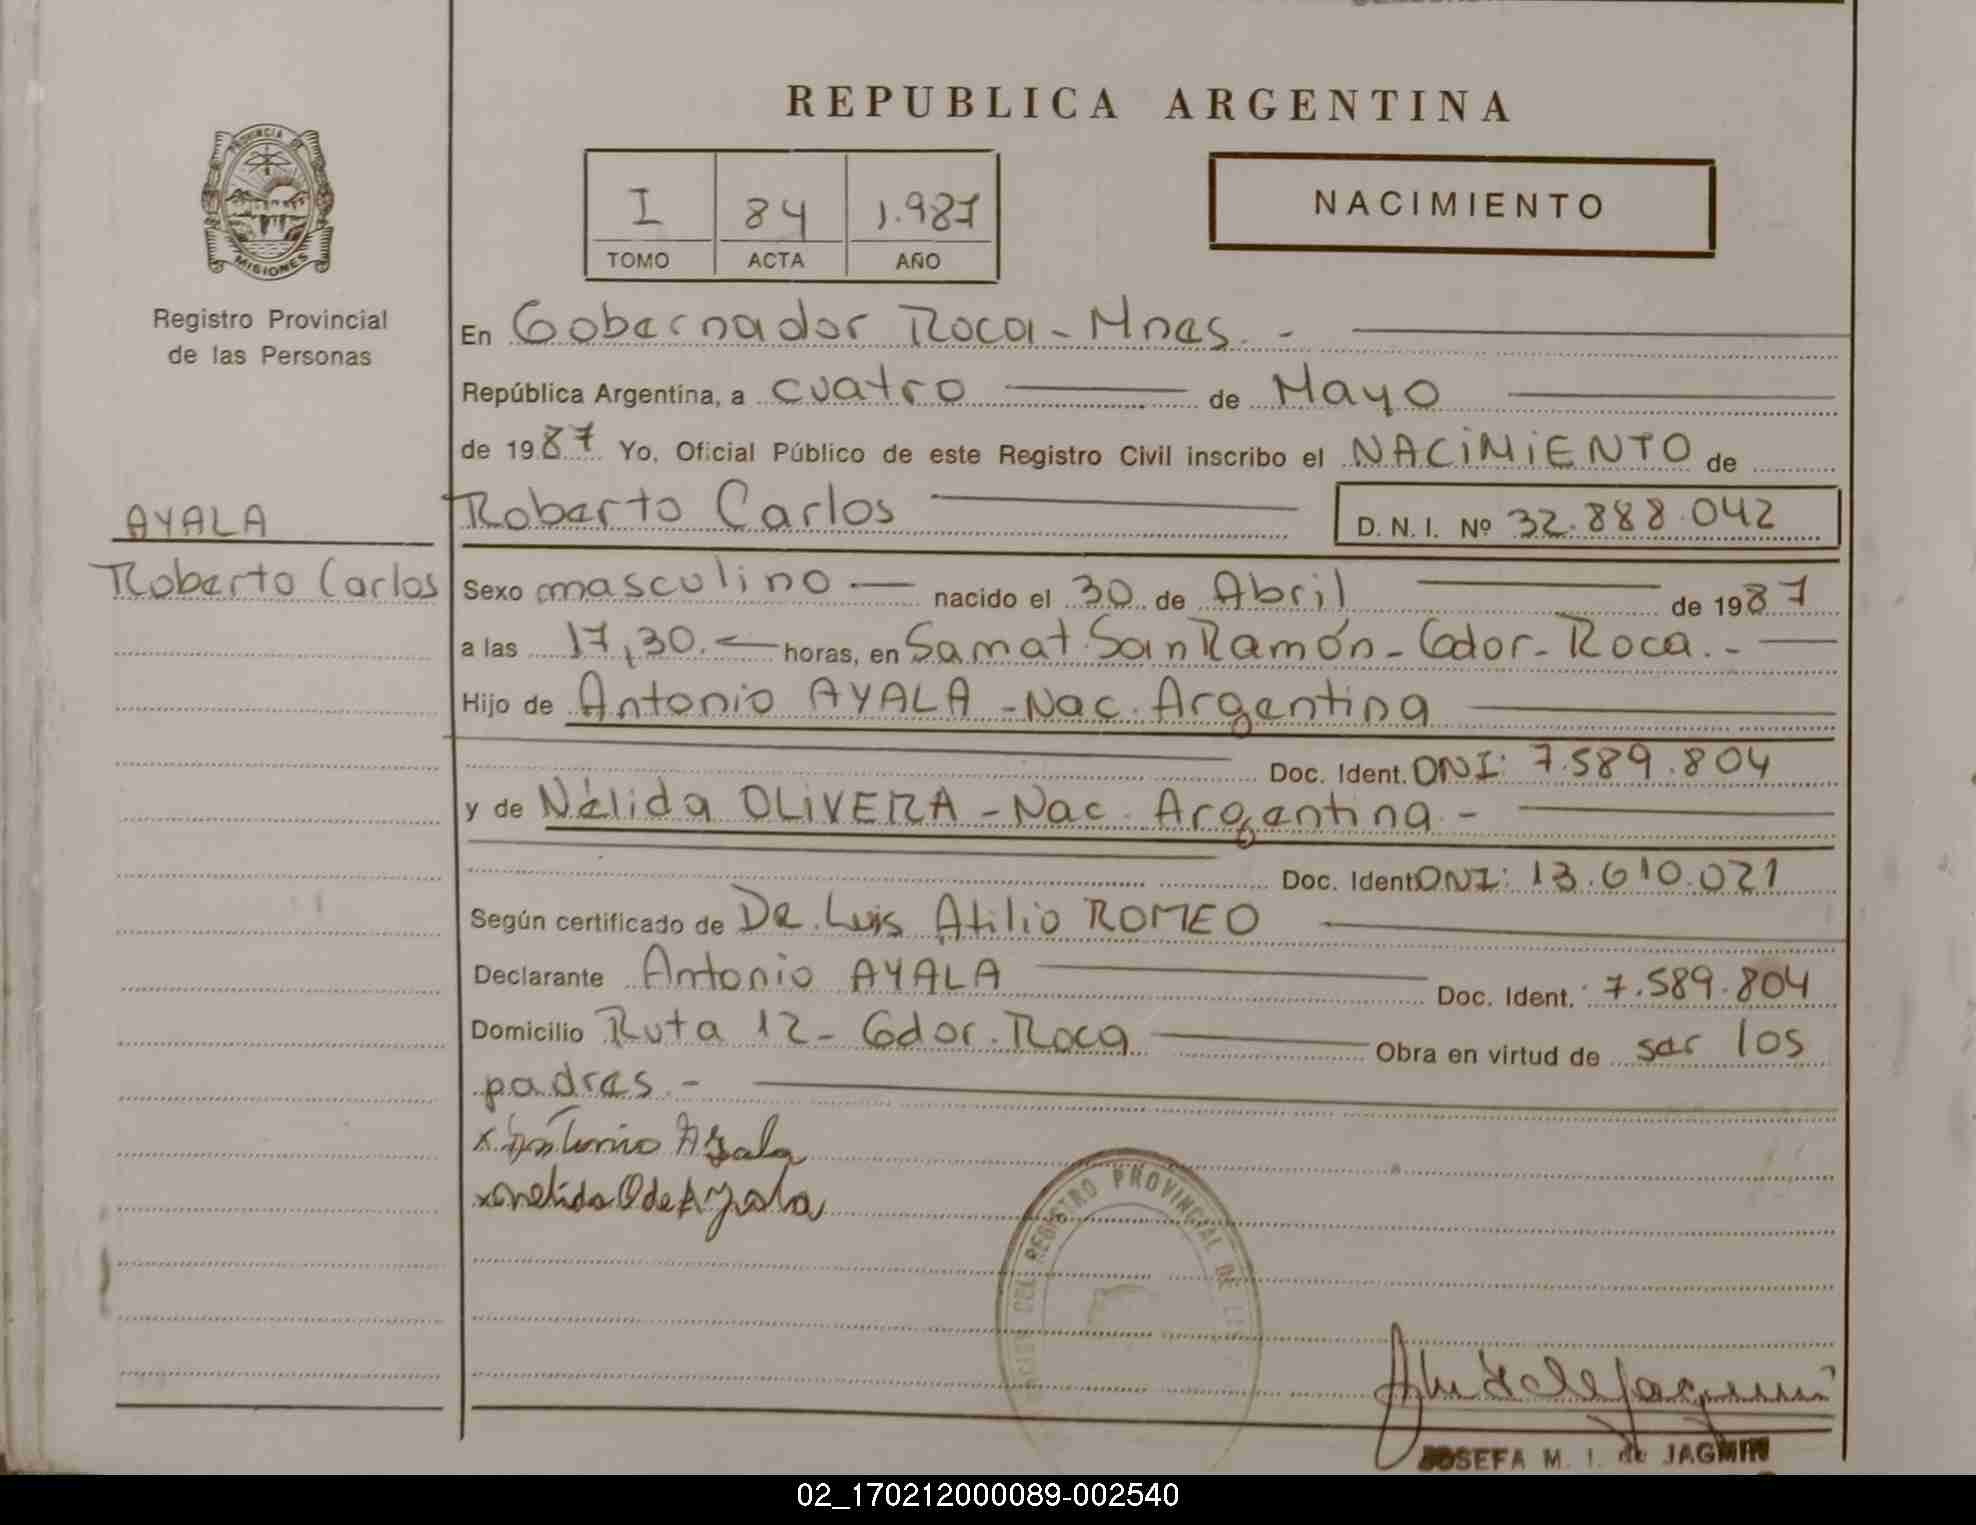 REPUBLICA ARGENTINA
PROVINCIA DE
MISIONES
Registro Provincial
de las Personas
I 84 1.987
TOMO ACTA AÑO
NACIMIENTO
En Gobernador Roca - Mnes. -
República Argentina, a cuatro de Mayo
de 1987 Yo, Oficial Público de este Registro Civil inscribo el NACIMIENTO de
AYALA
Roberto Carlos
Roberto Carlos D. N. I. Nº 32.888.042
Sexo masculino nacido el 30 de Abril de 1987
a las 17,30. horas, en Samat San Ramón - Gdor - Roca. -
Hijo de Antonio AYALA - Nac. Argentina
Doc. Ident. DNI: 7.589.804
y de Nélida OLIVERA - Nac. Argentina -
Doc. Ident DNI: 13.610.021
Según certificado de Dr. Luis Atilio ROMEO
Declarante Antonio AYALA Doc. Ident. 7.589.804
Domicilio Ruta 12 - Gdor. Roca Obra en virtud de ser los
padres. -
x Antonio Ayala
x nelida O de Ayala
DEL REGISTRO PROVINCIAL DE
JOSEFA M. I. de JAGMIN
02_170212000089-002540